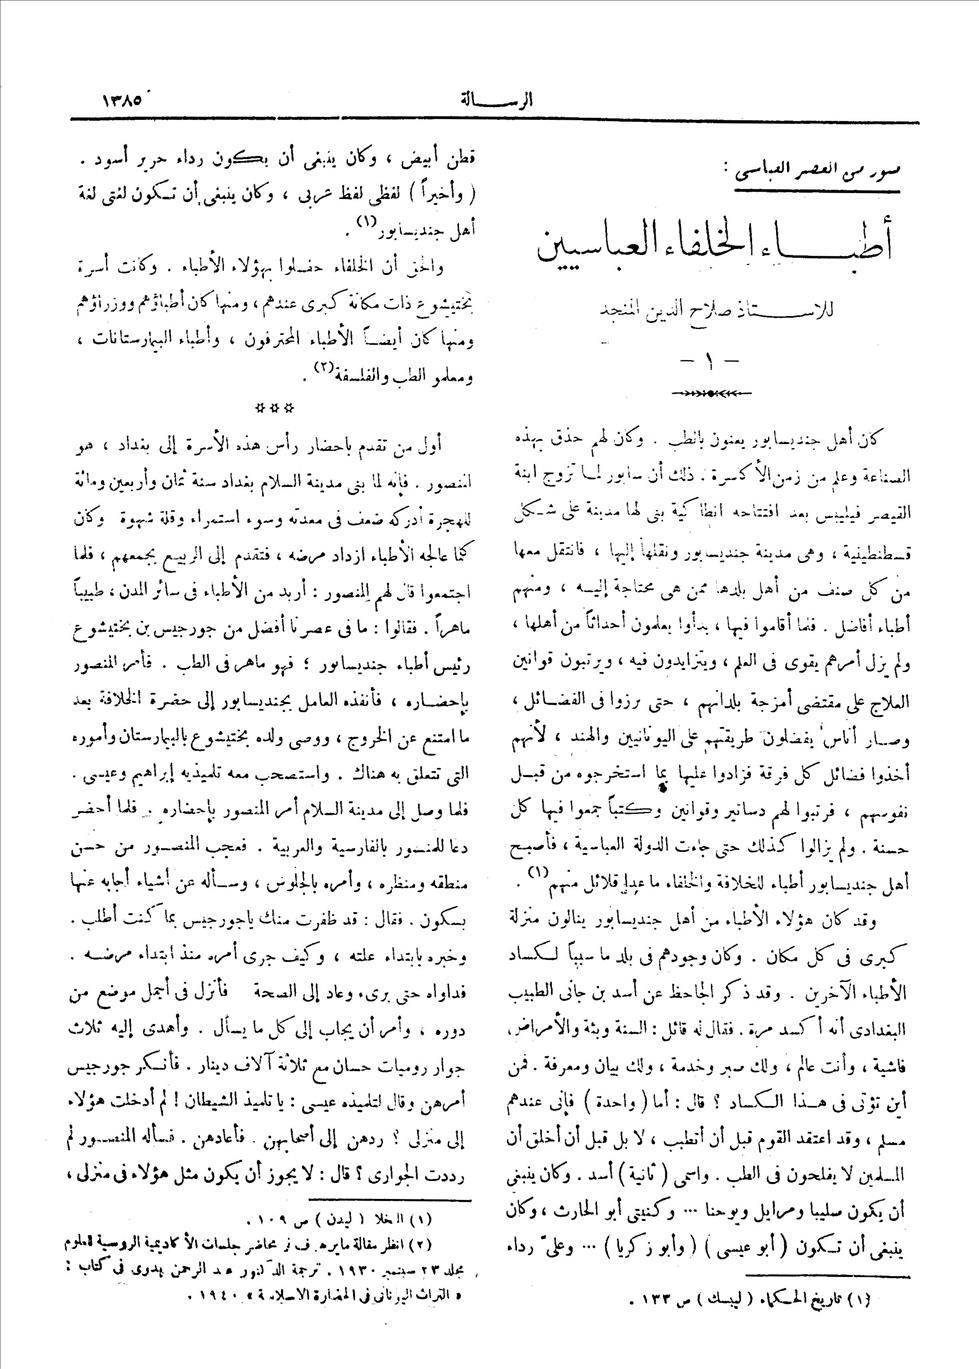 الرسالة
١٣٨٥
صور من العصر العباسى :
أطباء الخلفاء العباسيين
للاستاذ صلاح الدين المنجد
— ١ —
كان أهل جنديسابور يعنون بالطب . وكان لهم حذق بهذه
الصناعة وعلم من زمن الأكسرة . ذلك أن سابور لما تزوج ابنة
القيصر فيليبس بعد افتتاحه انطاكية بنى لها مدينة على شكل
قسطنطينية ، وهى مدينة جنديسابور ونقلها إليها ، فانتقل معها
من كل صنف من أهل بلدها ممن هى محتاجة إليه ، ومنهم
أطباء أفاضل . فلما أقاموا فيها ، بدأوا يعلمون أحداثاً من أهلها ،
ولم يزل أمرهم يقوى فى العلم ، ويتزايدون فيه ، ويرتبون قوانين
العلاج على مقتضى أمزجة بلدانهم ، حتى برزوا فى الفضائل ،
وصار أناس يفضلون طريقتهم على اليونانيين والهند ، لأنهم
أخذوا فضائل كل فرقة فزادوا عليها بما استخرجوه من قبل
نفوسهم ، فرتبوا لهم دساتير وقوانين وكتباً جمعوا فيها كل
حسنة . ولم يزالوا كذلك حتى جاءت الدولة العباسية ، فأصبح
أهل جنديسابور أطباء للخلافة والخلفاء ما عدا قلائل منهم(١) .
وقد كان هؤلاء الأطباء من أهل جنديسابور ينالون منزلة
كبرى فى كل مكان . وكان وجودهم فى بلد ما سبباً لكساد
الأطباء الآخرين . وقد ذكر الجاحظ عن أسد بن جانى الطبيب
البغدادى أنه أكسد مرة . فقال له قائل : السنة وبئة والأمراض
فاشية ، وأنت عالم ، ولك صبر وخدمة ، ولك بيان ومعرفة . فمن
أين تؤتى فى هذا الكساد ؟ قال : أما ( واحدة ) فإنى عندهم
مسلم ، وقد اعتقد القوم قبل أن أتطبب ، لا بل قبل أن أخلق أن
المسلمين لا يفلحون فى الطب . واسمى ( ثانية ) أسد . وكان ينبغى
أن يكون صليبا ومرايل ويوحنا ... وكنيتى أبو الحارث ، وكان
ينبغى أن تكون ( أبو عيسى ) ( وأبو زكريا ) ... وعلىّ رداء
(١) تاريخ الحكماء ( ليبسك ) ص ١٣٣ .
قطن أبيض ، وكان ينبغى أن يكون رداء حرير أسود .
( وأخيراً ) لفظى لفظ عربى ، وكان ينبغى أن تكون لغتى لغة
أهل جنديسابور(١) .
والحق أن الخلفاء حفلوا بهؤلاء الأطباء . وكانت أسرة
بختيشوع ذات مكانة كبرى عندهم ، ومنها كان أطباؤهم ووزراؤهم
ومنها كان أيضاً الأطباء المحترفون ، وأطباء البيمارستانات ،
ومعلمو الطب والفلسفة(٢) .
***
أول من تقدم باحضار رأس هذه الأسرة إلى بغداد ، هو
المنصور . فإنه لما بنى مدينة السلام بغداد سنة ثمان وأربعين ومائة
للهجرة أدركه ضعف فى معدته وسوء استمراء وقلة شهوة وكان
كلما عالجه الأطباء ازداد مرضه ، فتقدم إلى الربيع بجمعهم ، فلما
اجتمعوا قال لهم المنصور : أريد من الأطباء فى سائر المدن ، طبيباً
ماهراً . فقالوا : ما فى عصرنا أفضل من جورجيس بن بختيشوع
رئيس أطباء جنديسابور ؛ فهو ماهر فى الطب . فأمر المنصور
بإحضاره ، فأنفذه العامل بجنديسابور إلى حضرة الخلافة بعد
ما امتنع عن الخروج ، ووصى ولده بختيشوع بالبيمارستان وأموره
التى تتعلق به هناك . واستصحب معه تلميذيه إبراهيم وعيسى .
فلما وصل إلى مدينة السلام أمر المنصور بإحضاره . فلما أحضر
دعا للمنصور بالفارسية والعربية . فعجب المنصور من حسن
منطقه ومنظره ، وأمره بالجلوس ، وسأله عن أشياء أجابه عنها
بسكون . فقال : قد ظفرت منك ياجورجيس بما كنت أطلب .
وخبره بابتداء علته ، وكيف جرى أمره منذ ابتداء مرضه .
فداواه حتى برىء وعاد إلى الصحة فأنزل فى أجمل موضع من
دوره ، وأمر أن يجاب إلى كل ما يسأل . وأهدى إليه ثلاث
جوار روميات حسان مع ثلاثة آلاف دينار . فأنكر جورجيس
أمرهن وقال لتلميذه عيسى : يا تلميذ الشيطان ! لم أدخلت هؤلاء
إلى منزلى ؟ ردهن إلى أصحابهن . فأعادهن . فسأله المنصور لم
رددت الجوارى ؟ قال : لا يجوز أن يكون مثل هؤلاء فى منزلى ،
(١) البخلا ( ليدن ) ص ١٠٩ .
(٢) انظر مقالة مايرهوف فى محاضر جلسات الأكاديمية الروسية للعلوم
مجلد ٢٣ سبتمبر ١٩٣٠ . ترجمة الدكتور عبد الرحمن بدوى فى كتاب :
« التراث اليونانى فى الحضارة الاسلامية » ١٩٤٠ .